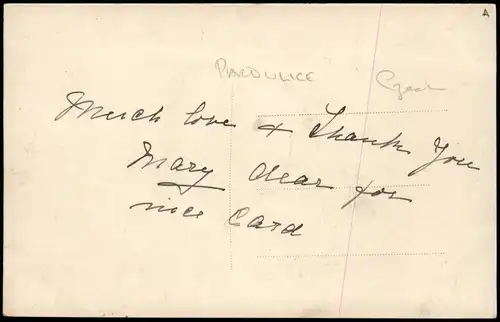 A
PARDUBICE
Czech
Much love + Thank You
Mary dear for
nice Card